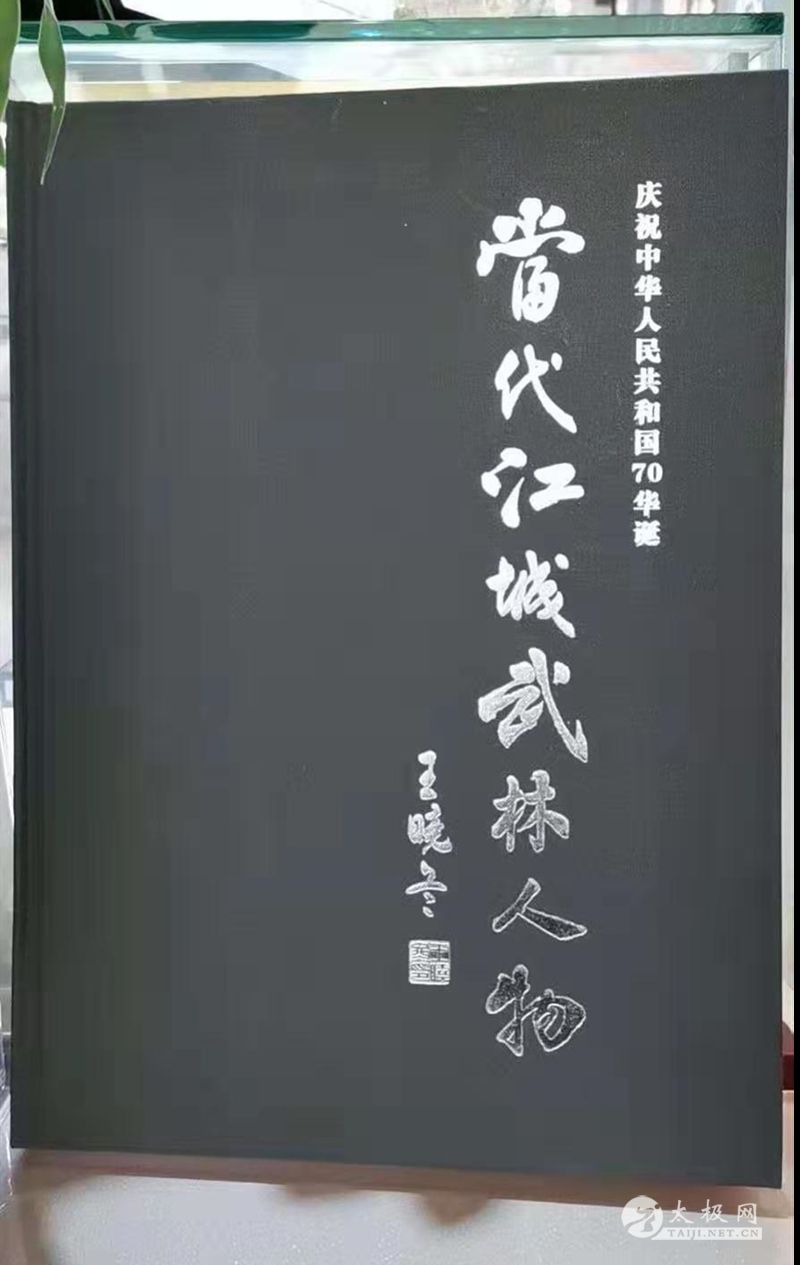 庆祝中华人民共和国70华诞
當代江城武林人物
王晓冬
太极网
TAIJI.NET.CN